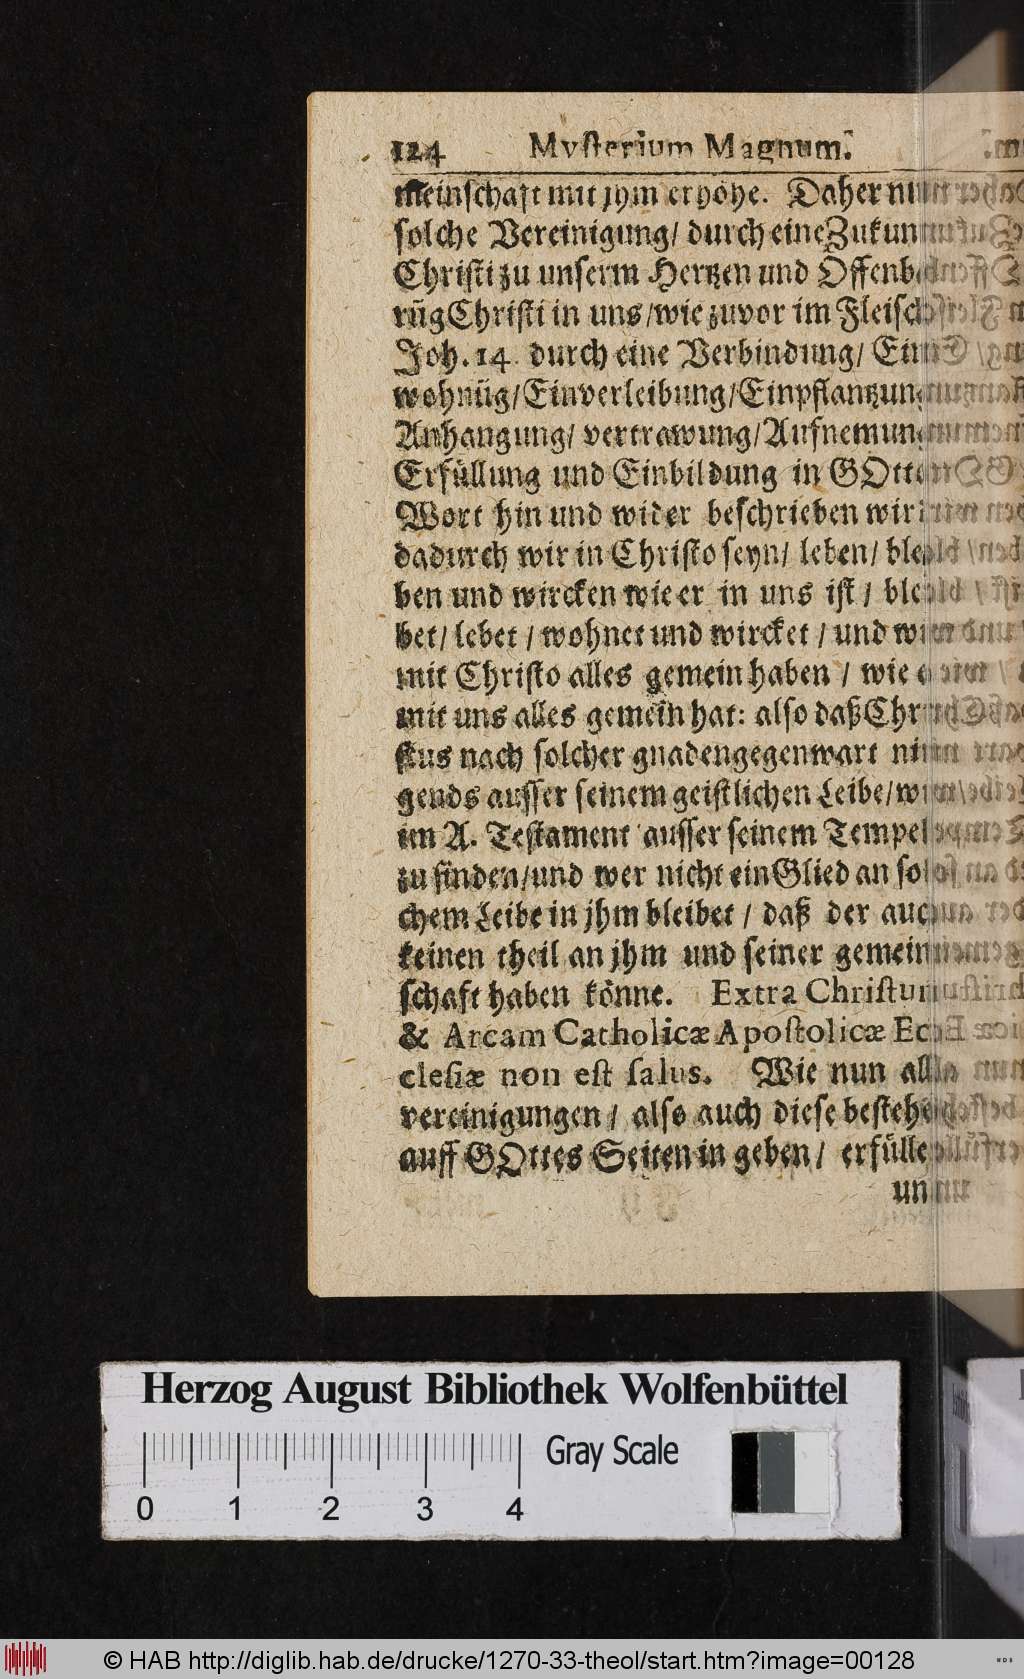 124 Mysterium Magnum.
meinschaft mit jhm erhöhe. Daher nun
solche Vereinigung/ durch eine Zukunn
Christi zu unserm Hertzen und Offenba
rũg Christi in uns/wie zuvor im Fleisch
Joh. 14 durch eine Verbindung/ Ein
wohnũg/Einverleibung/Einpflantzung
Anhangung/ vertrawung/Aufnemung
Erfüllung und Einbildung in GOttes
Wort hin und wider beschrieben wird
dadurch wir in Christo seyn/ leben/ blei
ben und wircken wie er in uns ist / blei
bet/ lebet / wohnet und wircket / und wir
mit Christo alles gemein haben / wie er
mit uns alles gemein hat: also daß Chri
stus nach solcher gnadengegenwart nir
gends ausser seinem geistlichen Leibe/wie
im A. Testament ausser seinem Tempel
zu finden/und wer nicht ein Glied an sol
chem Leibe in jhm bleibet / daß der auch
keinen theil an jhm und seiner gemein
schaft haben könne. Extra Christum
& Arcam Catholicæ Apostolicæ Ec
clesiæ non est salus. Wie nun alle
vereinigungen / also auch diese bestehe
auff GOttes Seiten in geben / erfülle
un
Herzog August Bibliothek Wolfenbüttel
Gray Scale
0 1 2 3 4
© HAB http://diglib.hab.de/drucke/1270-33-theol/start.htm?image=00128